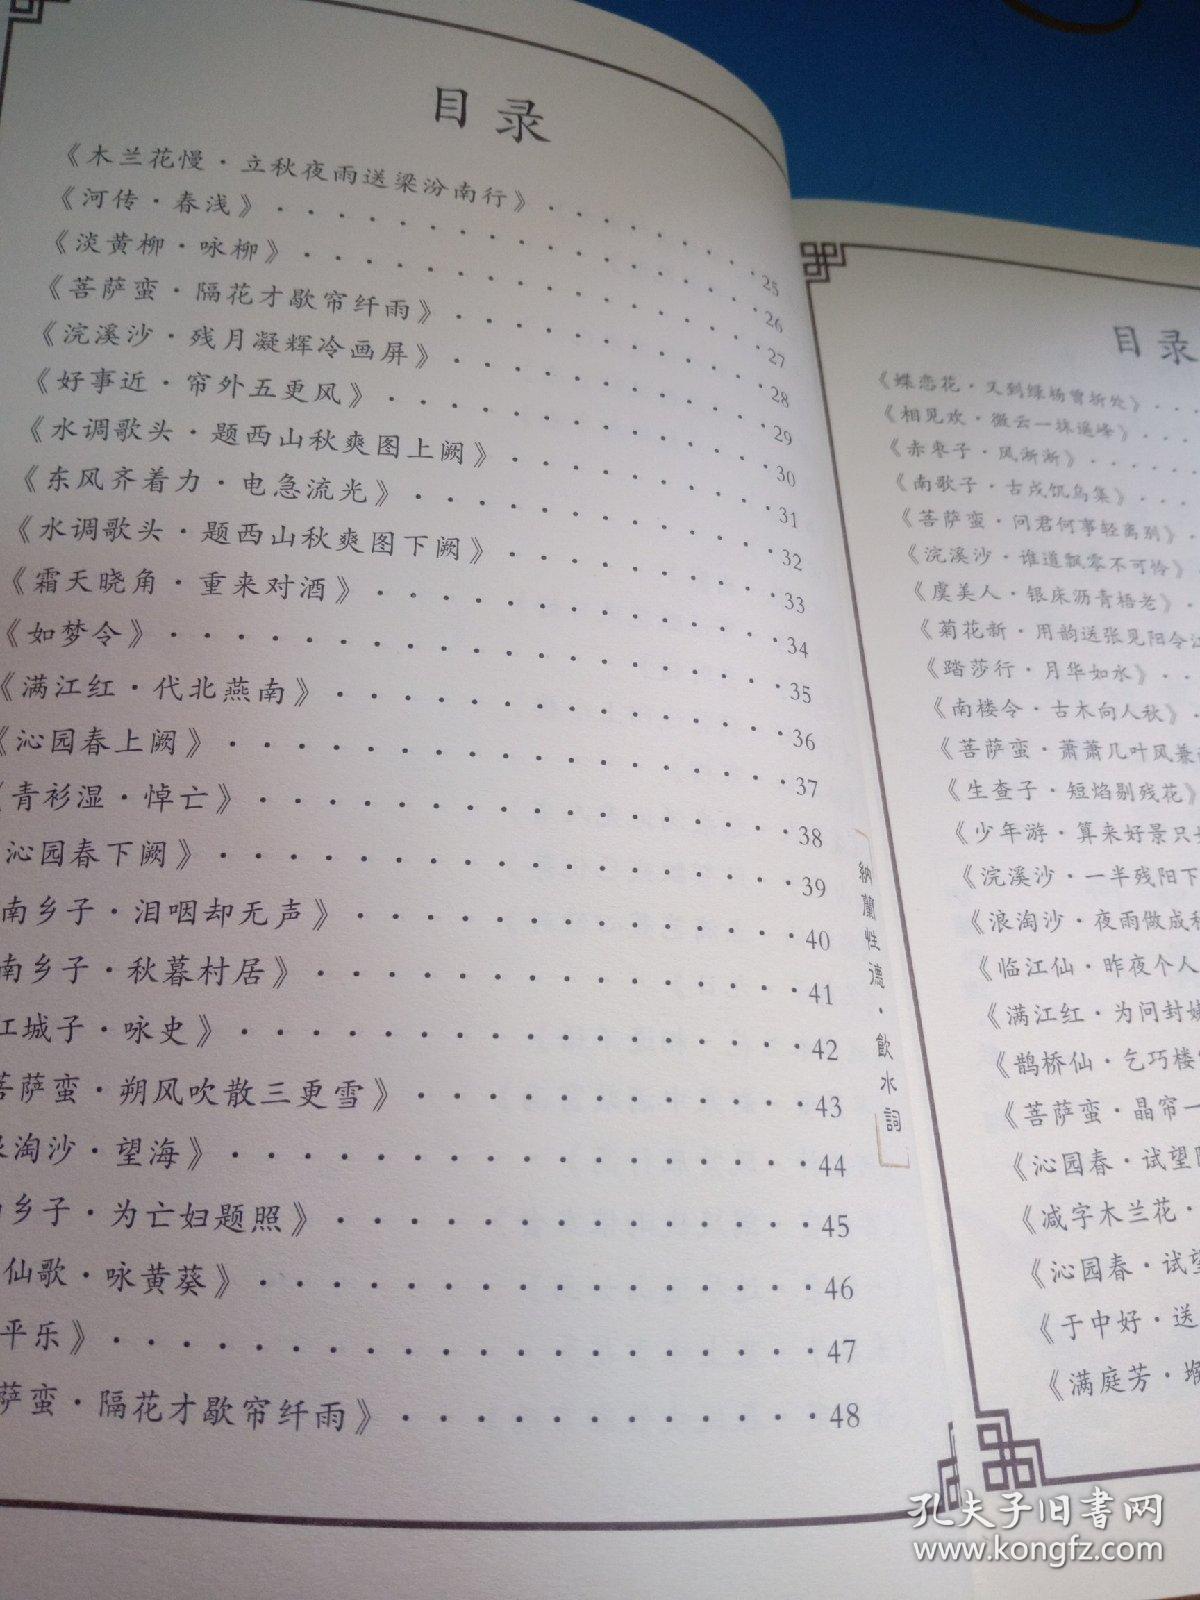 目录
《木兰花慢·立秋夜雨送梁汾南行》·······25
《河传·春浅》················26
《淡黄柳·咏柳》···············27
《菩萨蛮·隔花才歇帘纤雨》··········28
《浣溪沙·残月凝辉冷画屏》··········29
《好事近·帘外五更风》············30
《水调歌头·题西山秋爽图上阙》········31
《东风齐着力·电急流光》···········32
《水调歌头·题西山秋爽图下阙》········33
《霜天晓角·重来对酒》············34
《如梦令》··················35
《满江红·代北燕南》·············36
《沁园春上阙》················37
《青衫湿·悼亡》···············38
沁园春下阙》·················39
南乡子·泪咽却无声》·············40
南乡子·秋暮村居》··············41
江城子·咏史》················42
菩萨蛮·朔风吹散三更雪》···········43
浪淘沙·望海》················44
乡子·为亡妇题照》··············45
仙歌·咏黄葵》················46
平乐》····················47
萨蛮·隔花才歇帘纤雨》············48
納蘭性德·飲水詞
目录
《蝶恋花·又到绿杨曾折处》····
《相见欢·微云一抹遥峰》····
《赤枣子·风淅淅》······
《南歌子·古戍饥乌集》····
《菩萨蛮·问君何事轻离别》··
《浣溪沙·谁道飘零不可怜》·
《虞美人·银床沥青梧老》··
《菊花新·用韵送张见阳令江
《踏莎行·月华如水》···
《南楼令·古木向人秋》·
《菩萨蛮·萧萧几叶风兼
《生查子·短焰剔残花》
《少年游·算来好景只
《浣溪沙·一半残阳下
《浪淘沙·夜雨做成秋
《临江仙·昨夜个人
《满江红·为问封姨
《鹊桥仙·乞巧楼
《菩萨蛮·晶帘一
《沁园春·试望阴
《减字木兰花·
《沁园春·试望
《于中好·送
《满庭芳·堠
孔夫子旧书网
www.kongfz.com